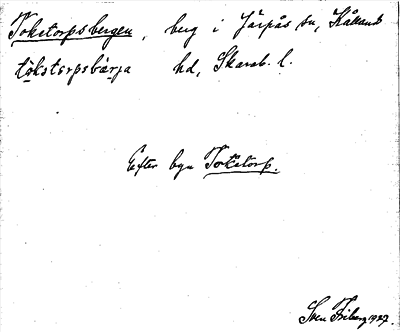 Toketorpsbergen, berg i Järpås sn, Kållands
tökstorpsbärja hd, Skarab. l.
Efter byn Toketorp.
Sven Friberg 1927.